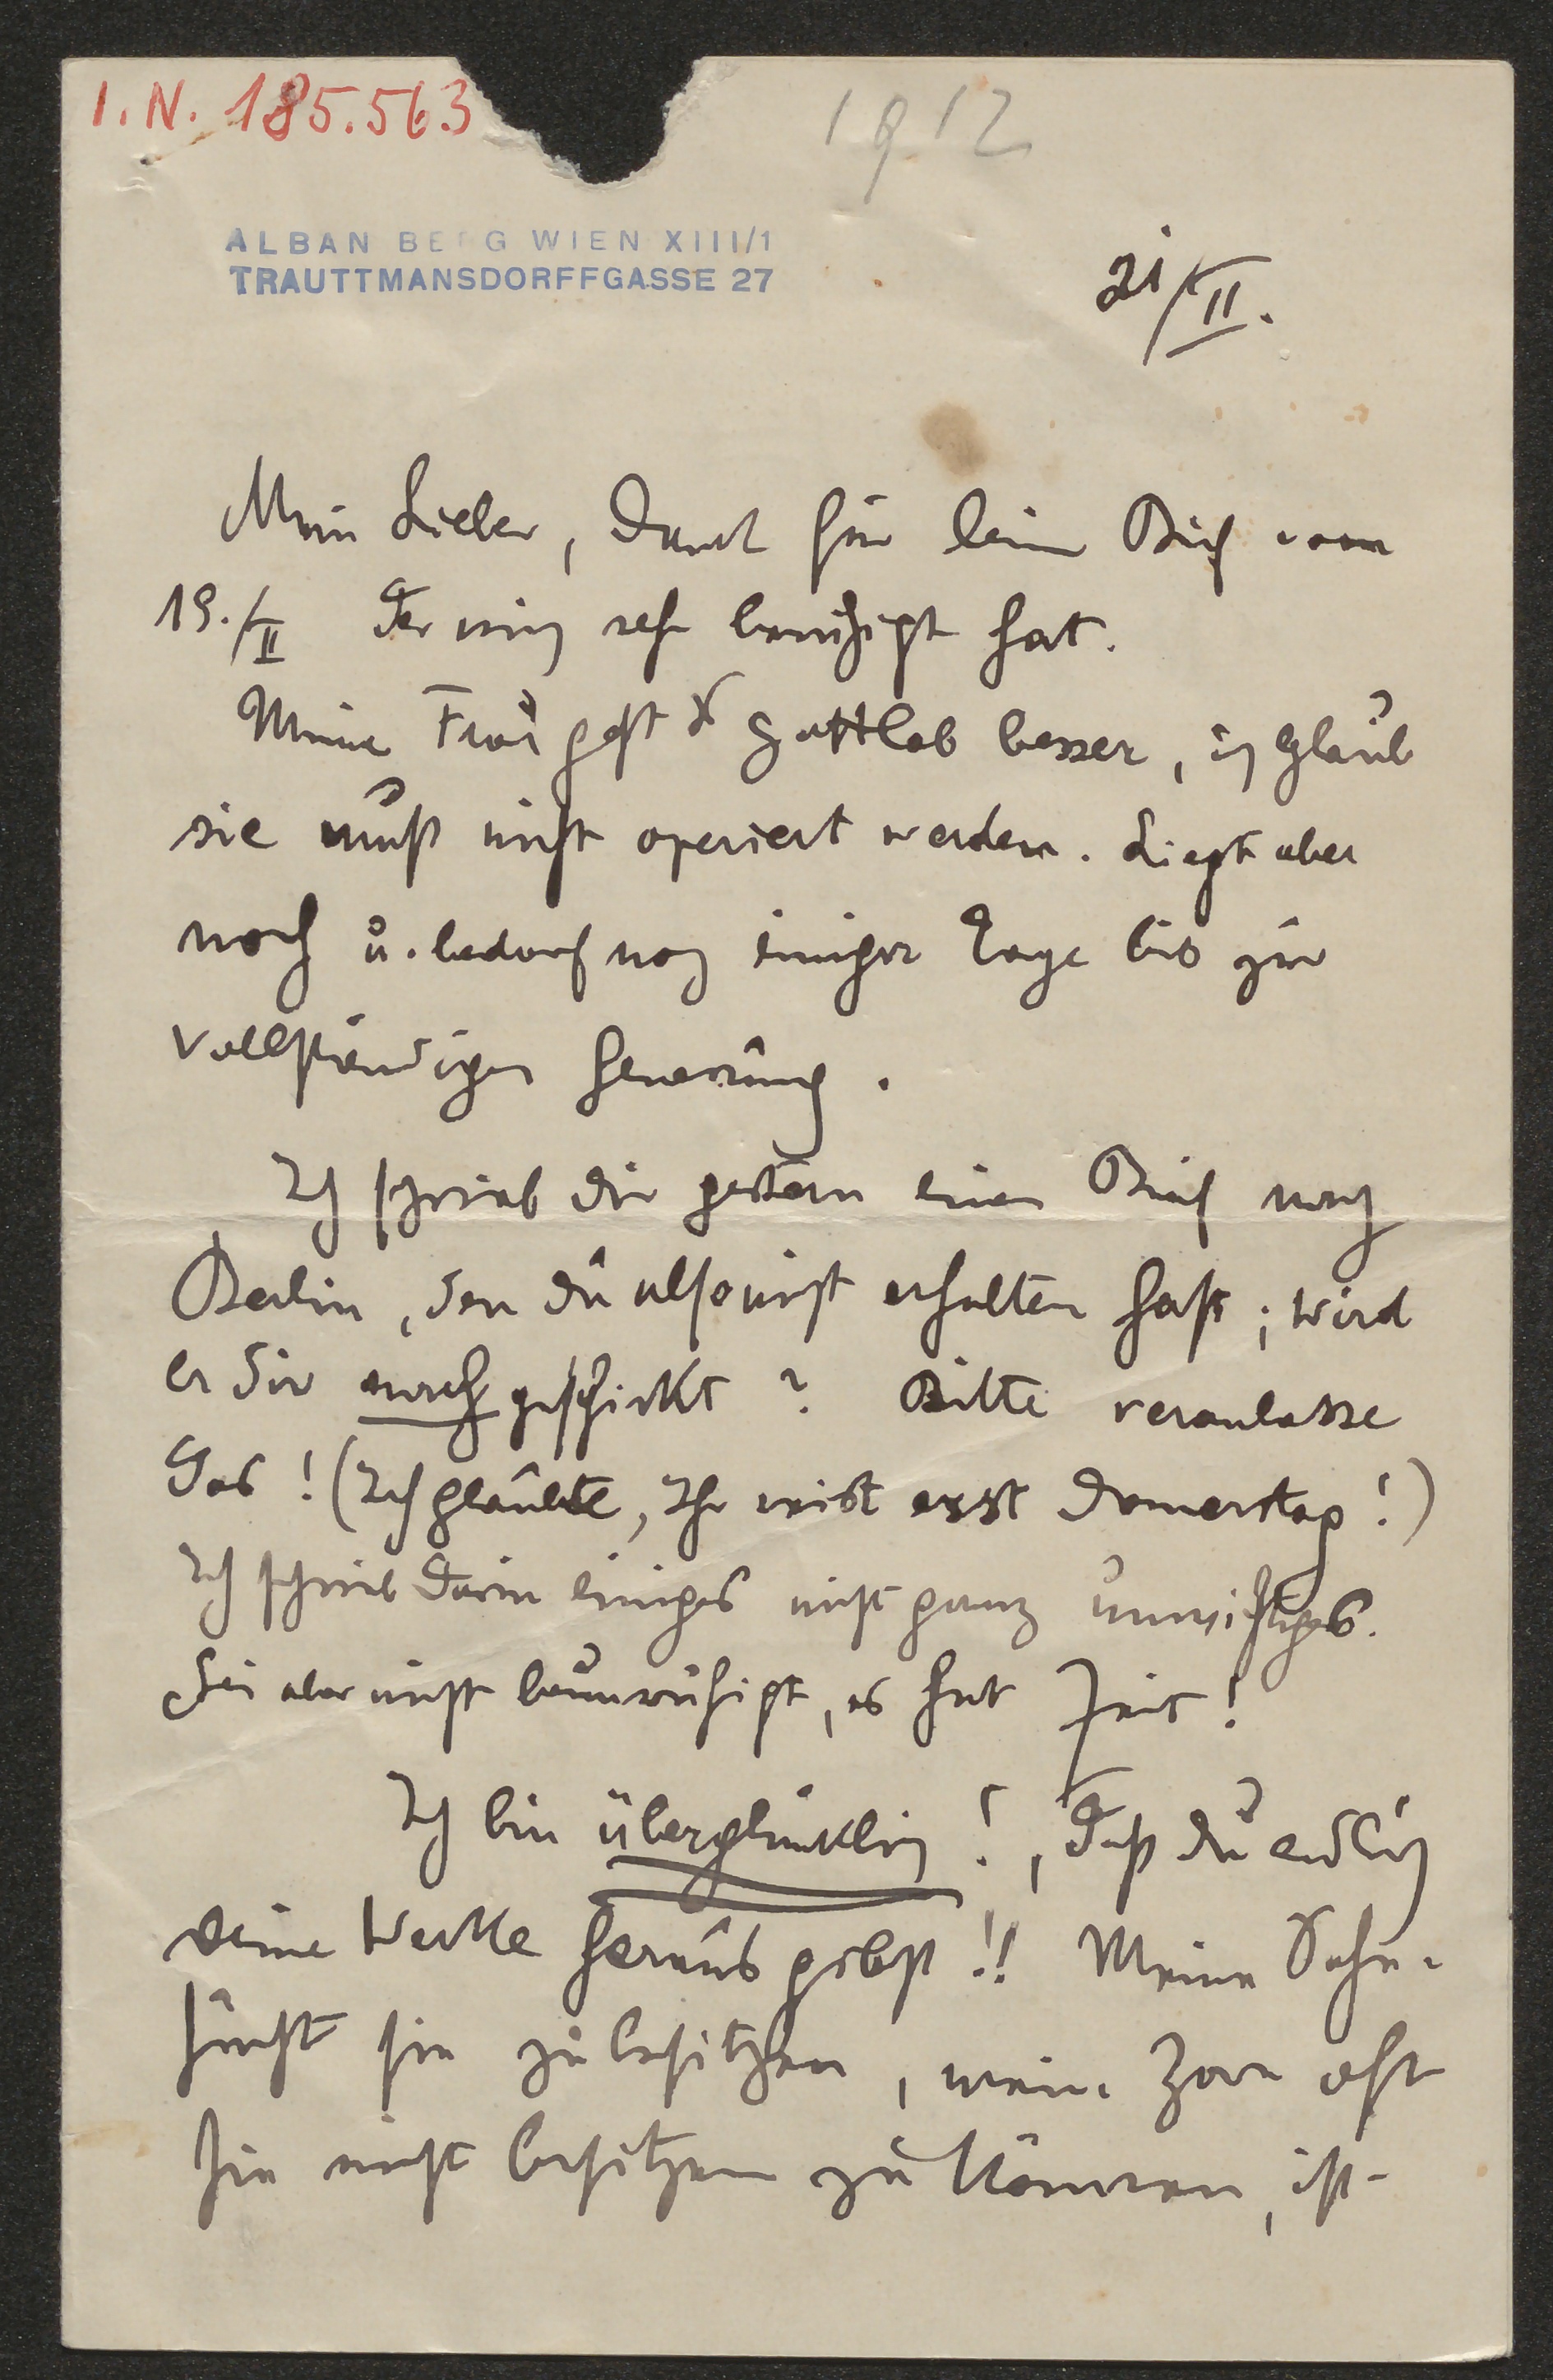 I.N. 185.563
1912
ALBAN BERG WIEN XIII/1
TRAUTTMANSDORFFGASSE 27
21/II.
Mein Lieber, Dank für Dein Brief vom
19./II der mich sehr beruhigt hat.
Meine Frau geht's gottlob besser, ich glaub
sie muß nicht operiert werden. Liegt aber
noch u. bedarf noch einiger Tage bis zur
vollständigen Genesung.
Ich schrieb Dir gestern einen Brief nach
Berlin, den Du also nicht erhalten hast; wird
er Dir nachgeschickt? Bitte veranlasse
das! (Ich glaubte, Ihr reist erst Donnerstag!)
Ich schrieb darin einiges nicht ganz unwichtiges.
Sei aber nicht beunruhigt, es hat Zeit!
Ich bin überglücklich!, daß Du endlich
Deine Werke herausgibst!! Meine Sehn-
sucht sie zu besitzen, mein Zorn oft
sie nicht besitzen zu können, ist